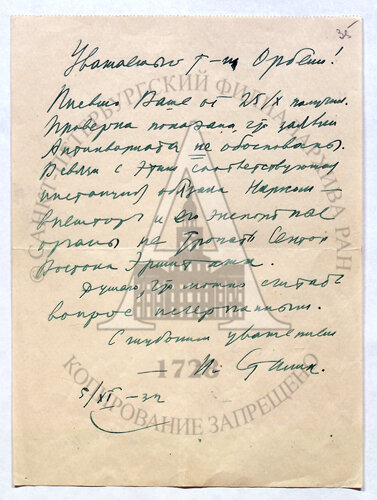 35
Уважаемый т-щ Орбели!
Письмо Ваше от 25/X получил.
Проверка показала, что заявки
Антиквариата не обоснованы.
В связи с этим соответствующая
инстанция обязала Нарком-
внешторг и его экспортные
органы не трогать Сектор
Востока Эрмитажа.
Думаю, что можно считать
вопрос исчерпанным.
С глубоким уважением
И. Сталин.
5/XI–32
САНКТ-ПЕТЕРБУРГСКИЙ ФИЛИАЛ АРХИВА РАН
1728
КОПИРОВАНИЕ ЗАПРЕЩЕНО